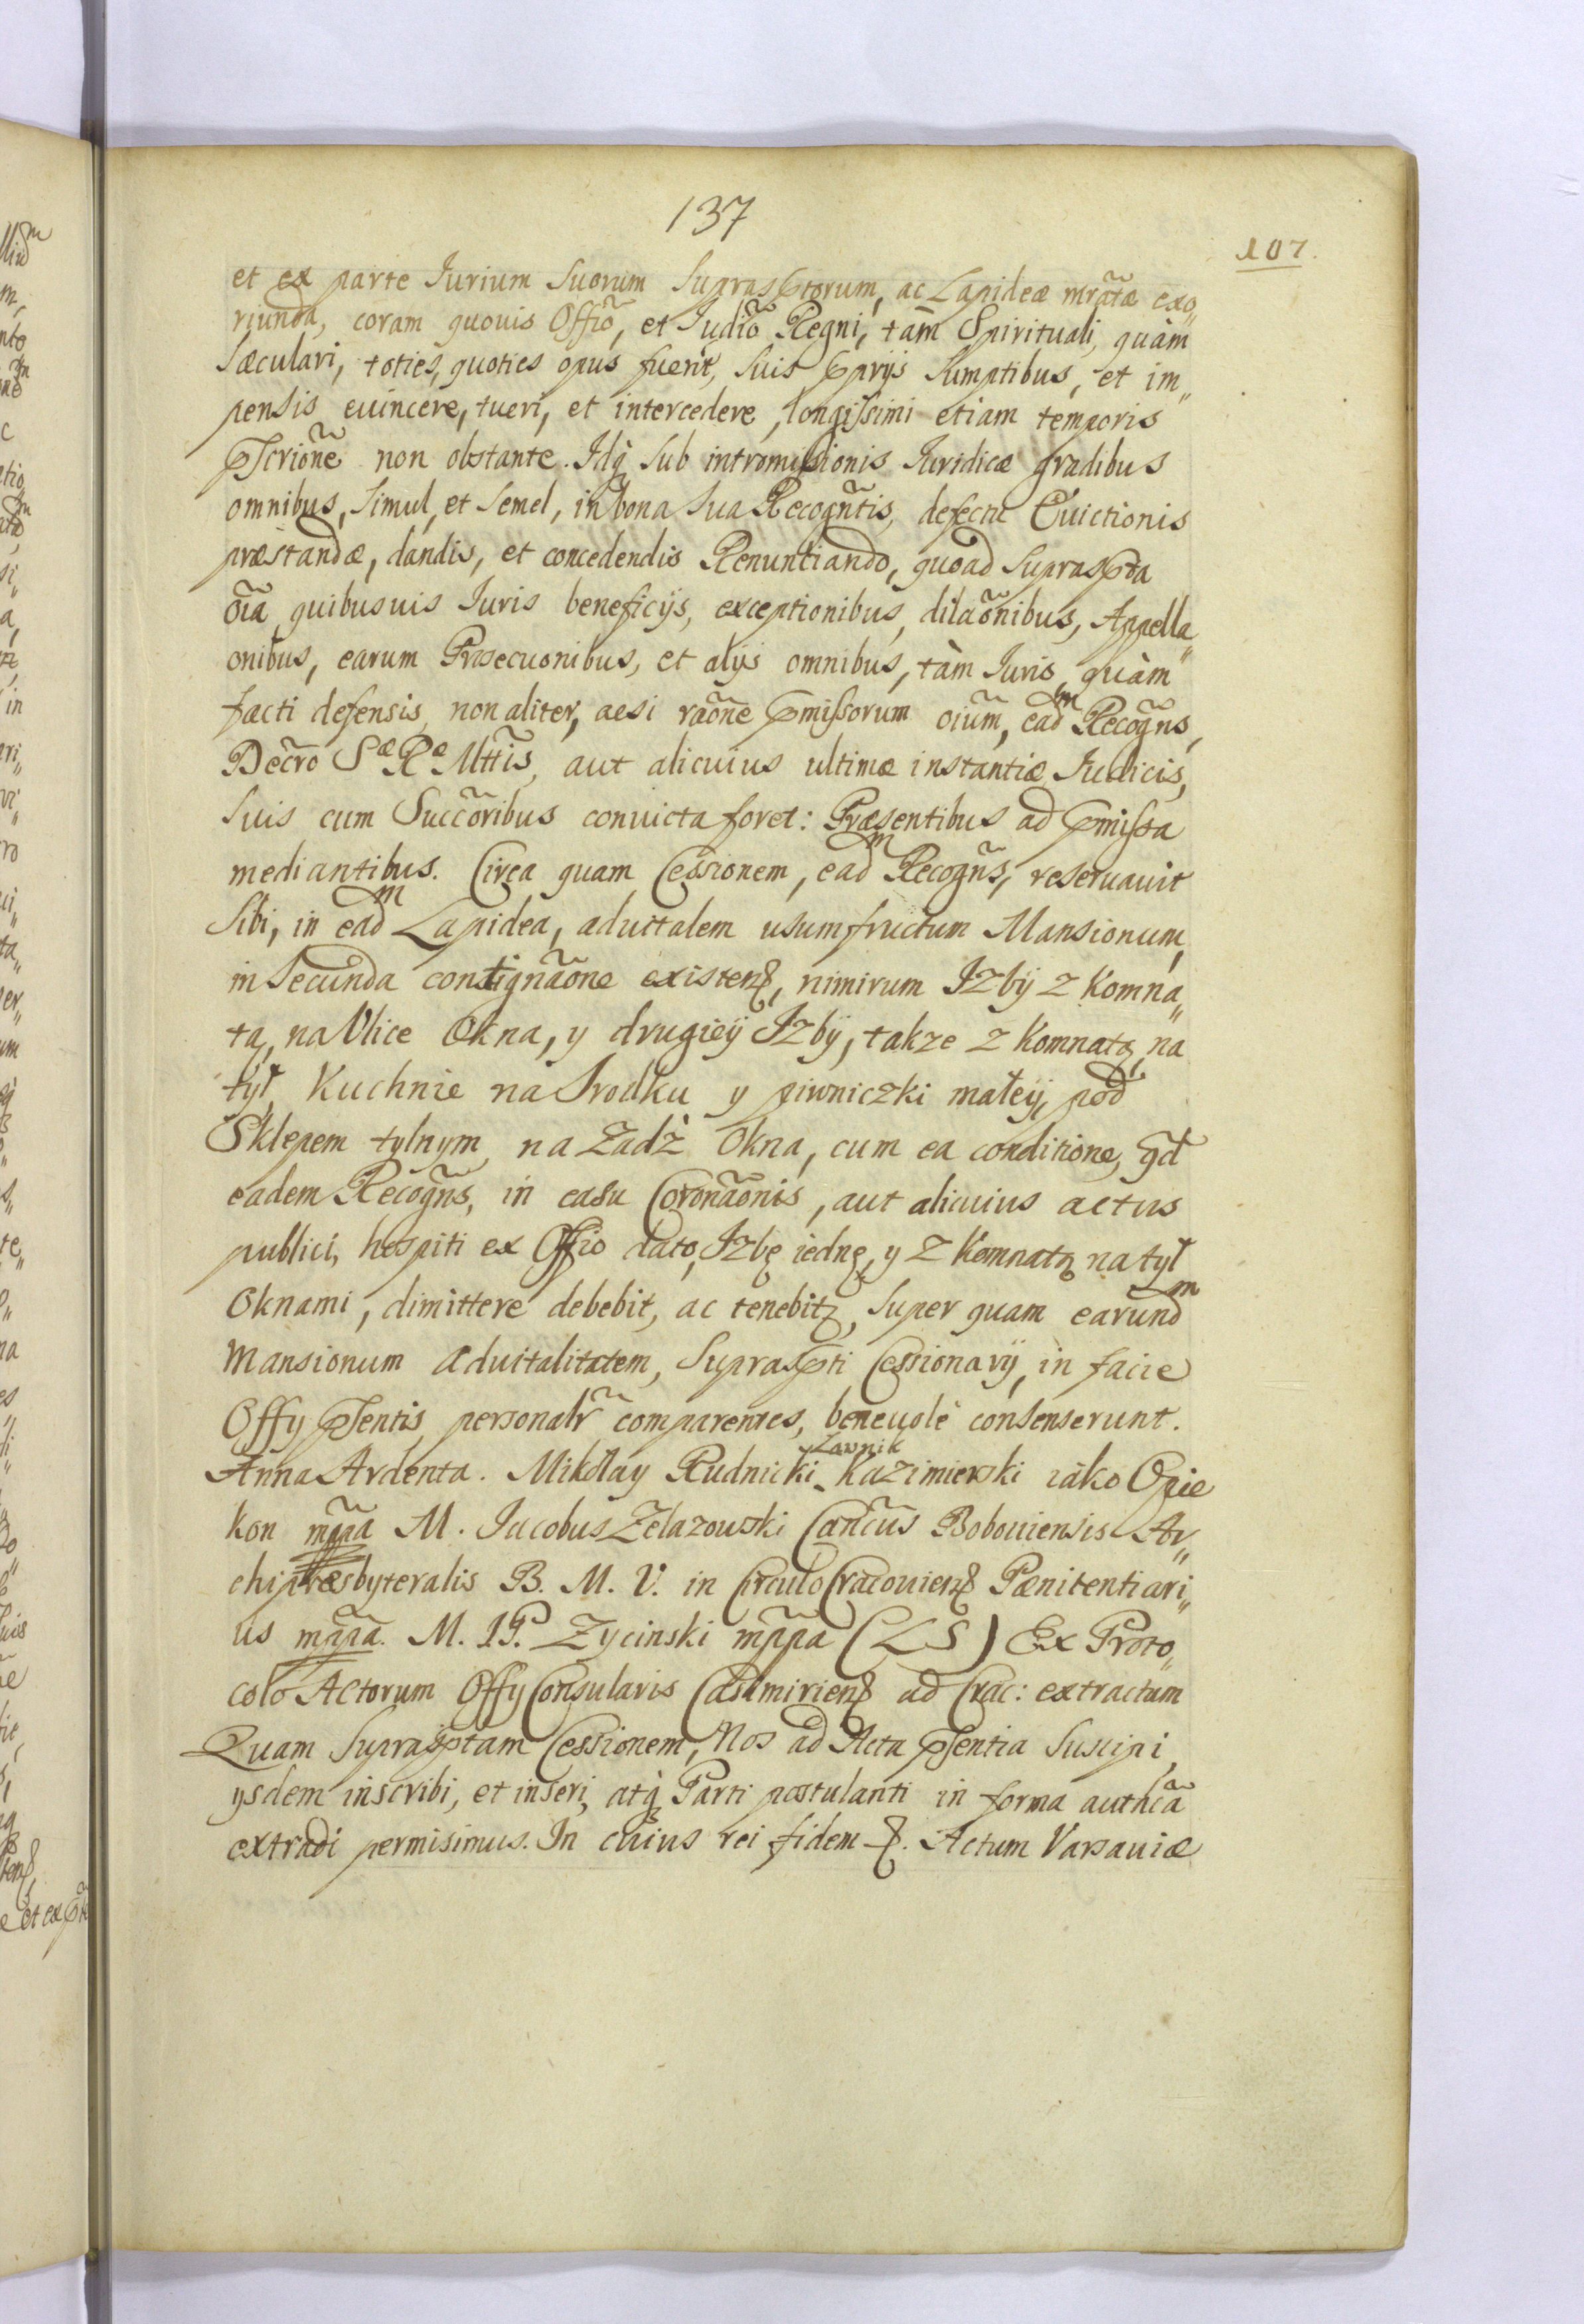 137
107.
et ex parte Jurium Suorum Suprasptorum, ac Lapideæ mrãtæ exo„
riunda, coram quouis Offiõ, et Judiõ Regni, tàm Spirituali, quàm
Sæculari, toties, quoties opus fuerit, Suis pprijs Sumptibus, et im„
pensis euincere, tueri, et intercedere, longissimi etiam temporis
pscriõne non obstante. Idq̃ Sub intromissionis Iuridicæ gradibus
omnibus, Simul, et Semel, in bona Sua Recogñtis, defectu Euictionis
præstandæ, dandis, et concedendis Renuntiando, quoad Supraspta
oĩa quibusuis Iuris beneficijs, exceptionibus, dilaõnibus, Appella„
onibus, earum Prosecuonibus, et alijs omnibus, tàm Iuris, quàm
facti defensis, non aliter, acsi raõne pmissorum oiũm, eadm Recogñs,
Decr̃o Sæ Ræ Mttĩs, aut alicuius ultimæ instantiæ Iudicis,
Suis cum Succõribus conuicta foret: Præsentibus ad pmissa
mediantibus. Circa quam Cessionem, eadm Recogñs, reseruauit
Sibi, in eadm Lapidea, aduitalem usumfructum Mansionum,
in Secunda contignãone existen, nimirum Izbÿ z Komna„
tą, na Vlice Okna, y drugieÿ Izbÿ, takze z Komnatą, na
tył, Kuchnie na Srodku y piwniczki małeÿ, pod
Sklepem tylnym, na Zadź Okna, cum ea conditione, qd̃
eadem Recogñs, in casu Coronãonis, aut alicuius actus
publici, hospiti ex Offio dato, Izbę iednę, y z Komnatą na tył
Oknami, dimittere debebit, ac tenebit, Super quam earundm
Mansionum Aduitalitatem, Suprascpti Cessionarÿ, in facie
Offy psentis, personalr̃ comparentes, beneuolè consenserunt.
Anna Ardenta. Mikołay Rudnicki Ławnik Kazimierski iako Opie
kon mp̃pa M. Jacobus Zelazowski Cañcus Bobouiensis Ar„
chipræsbyteralis B. M. V. in Circulo Cracouien Pænitentiari„
us mp̃pa. M. J. P. Zycinski mp̃pa (LS) Ex Proto„
colo Actorum Offy Consularis Casimirien ad Crac: extractum
Quam Suprasptam Cessionem, Nos ad Acta psentia Suscipi,
ysdem inscribi, et inseri, atq̃ Parti postulanti in forma authcã
extradi permisimus. In cuius rei fidem. Actum Varsauiæ